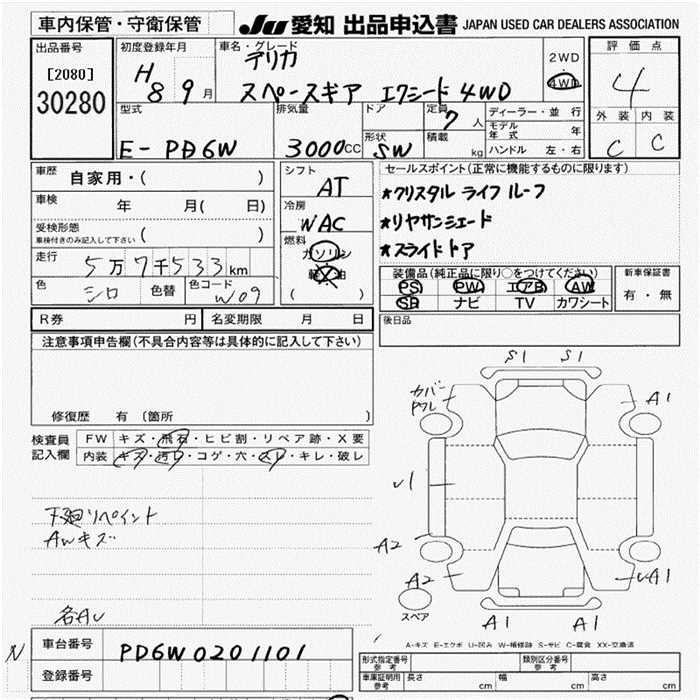 車内保管・守衛保管
JU 愛知 出品申込書 JAPAN USED CAR DEALERS ASSOCIATION
出品番号
[2080]
30280
初度登録年月
H 8 9 月
車名・グレード
デリカ
スペースギア エクシード 4WD
2WD
4WD
評価点
4
外装 内装
C C
型式
E- PD6W
排気量
3000 CC
ドア
形状
SW
定員
7 人
積載
kg
ディーラー・並行
モデル年式 年
ハンドル 左・右
車歴
自家用・( )
車検
年 月( 日)
受検形態
車検付きのみ記入して下さい ( )
走行
5万7千533 km
色
シロ
色替
色コード
W09
シフト
AT
冷房
WAC
燃料
ガソリン
軽油
( )
セールスポイント(正常に機能するものに限ります)
★クリスタル ライフ ルーフ
★リヤサンシェード
★スライドドア
装備品(純正品に限り○をつけてください)
PS PW エアB AW
SR ナビ TV カワシート
新車保証書
有・無
R券 円
名変期限 月 日
後日品
注意事項申告欄(不具合内容等は具体的に記入して下さい)
修復歴 有 〔箇所 〕
検査員
記入欄
FW キズ・飛石・ヒビ割・リペア跡・X要
内装 キズ・汚レ・コゲ・穴・スレ・キレ・破レ
下廻リペイント
AWキズ
各AU
S1 S1
カバー
ワレ
A1
U1
A2
A2
UA1
スペア
A1 A1
A-キズ E-エクボ U-凹み W-補修跡 S-サビ C-腐食 XX-交換済
N
車台番号
PD6W0201101
登録番号
形式指定番号
参考
類別区分番号
参考
車庫証明用
参考
長さ cm
幅 cm
高さ cm